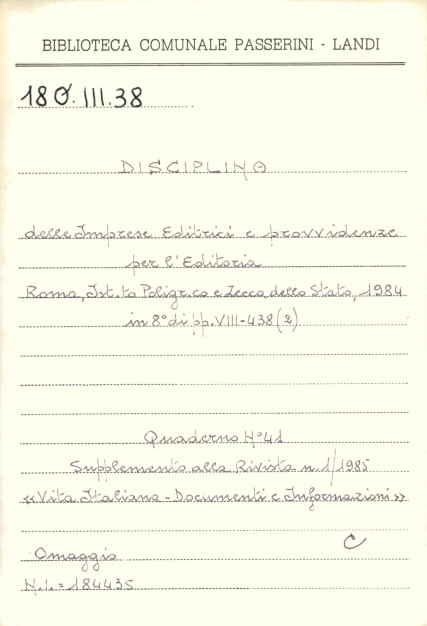 BIBLIOTECA COMUNALE PASSERINI - LANDI
180.III.38
DISCIPLINA
delle Imprese Editrici e provvidenze
per l'Editoria
Roma, Ist.to Poligr.co e Zecca dello Stato, 1984
in 8° di pp. VIII-438(2)
Quaderno N°41
Supplemento alla Rivista n.1/1985
«Vita Italiana - Documenti e Informazioni»
C
Omaggio
N.I.= 184435